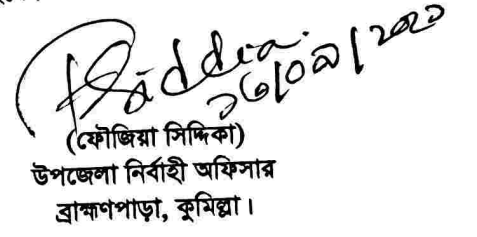 Siddika
(ফৌজিয়া সিদ্দিকা)
উপজেলা নির্বাহী অফিসার
ব্রাহ্মণপাড়া, কুমিল্লা।